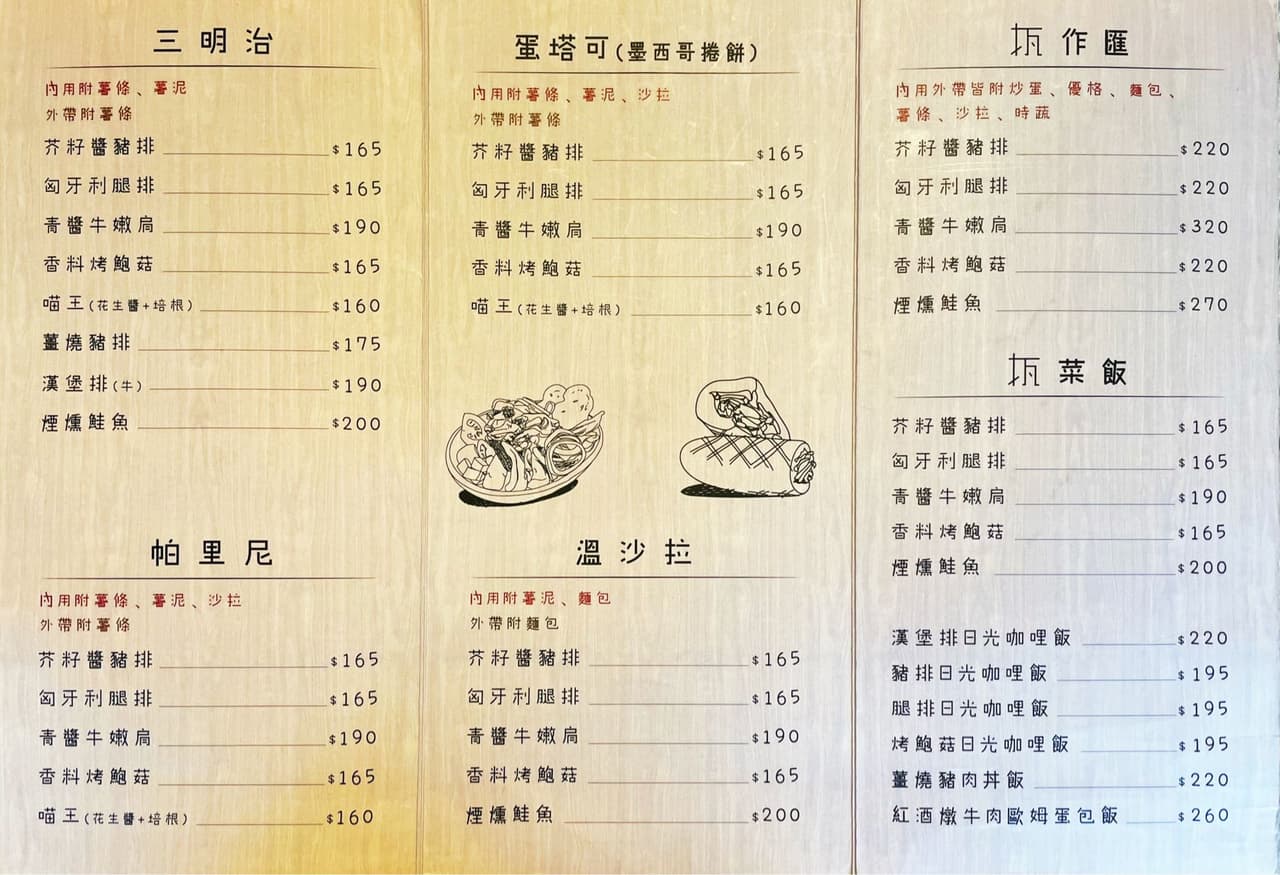 三明治
內用附薯條、薯泥
外帶附薯條
芥籽醬豬排 $165
匈牙利腿排 $165
青醬牛嫩肩 $190
香料烤鮑菇 $165
喵王(花生醬+培根) $160
薑燒豬排 $175
漢堡排(牛) $190
煙燻鮭魚 $200
帕里尼
內用附薯條、薯泥、沙拉
外帶附薯條
芥籽醬豬排 $165
匈牙利腿排 $165
青醬牛嫩肩 $190
香料烤鮑菇 $165
喵王(花生醬+培根) $160
蛋塔可(墨西哥捲餅)
內用附薯條、薯泥、沙拉
外帶附薯條
芥籽醬豬排 $165
匈牙利腿排 $165
青醬牛嫩肩 $190
香料烤鮑菇 $165
喵王(花生醬+培根) $160
溫沙拉
內用附薯泥、麵包
外帶附麵包
芥籽醬豬排 $165
匈牙利腿排 $165
青醬牛嫩肩 $190
香料烤鮑菇 $165
煙燻鮭魚 $200
作匯
內用外帶皆附炒蛋、優格、麵包、
薯條、沙拉、時蔬
芥籽醬豬排 $220
匈牙利腿排 $220
青醬牛嫩肩 $320
香料烤鮑菇 $220
煙燻鮭魚 $270
菜飯
芥籽醬豬排 $165
匈牙利腿排 $165
青醬牛嫩肩 $190
香料烤鮑菇 $165
煙燻鮭魚 $200
漢堡排日光咖哩飯 $220
豬排日光咖哩飯 $195
腿排日光咖哩飯 $195
烤鮑菇日光咖哩飯 $195
薑燒豬肉丼飯 $220
紅酒燉牛肉歐姆蛋包飯 $260